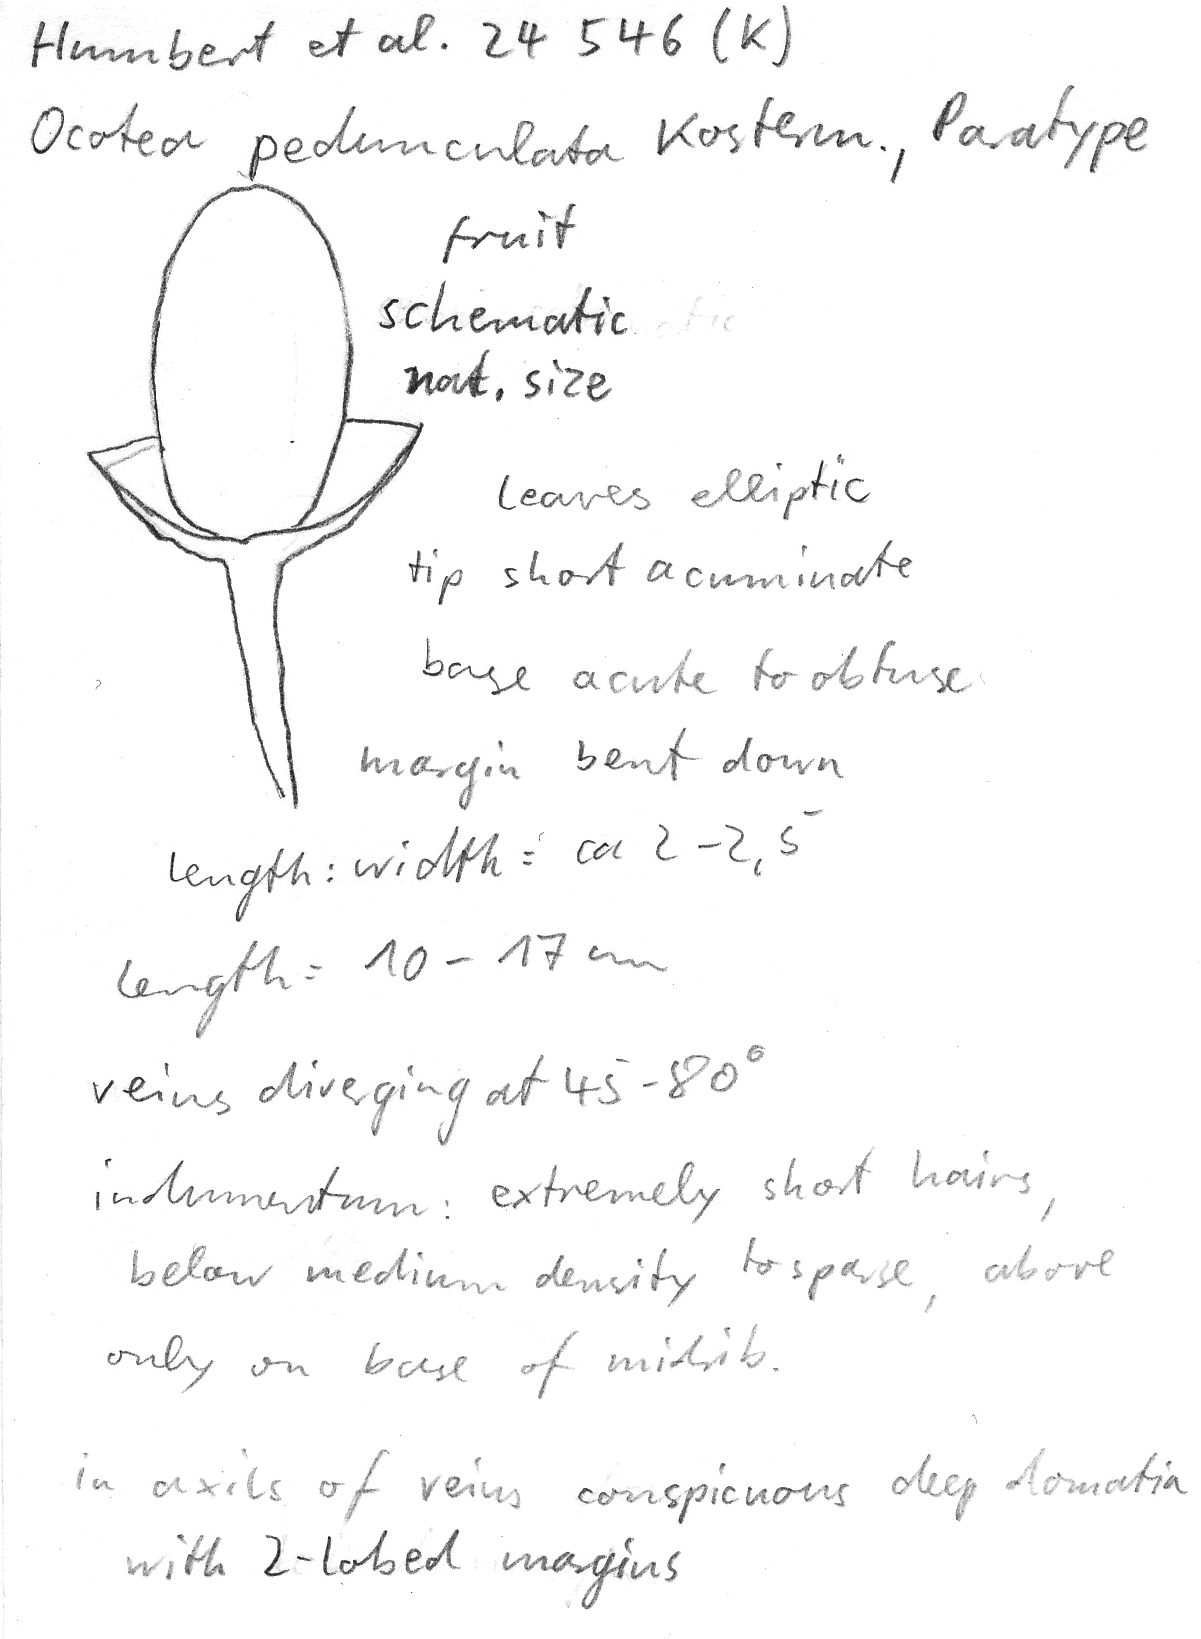 Humbert et al. 24 546 (K)
Ocotea pedunculata Kosterm., Paratype
fruit
schematic
nat. size
leaves elliptic
tip short acuminate
base acute to obtuse
margin bent down
length: width = ca 2-2,5
length = 10 - 17 cm
veins diverging at 45-80°
indumentum: extremely short hairs,
below medium density to sparse, above
only on base of midrib.
in axils of veins conspicuous deep domatia
with 2-lobed margins